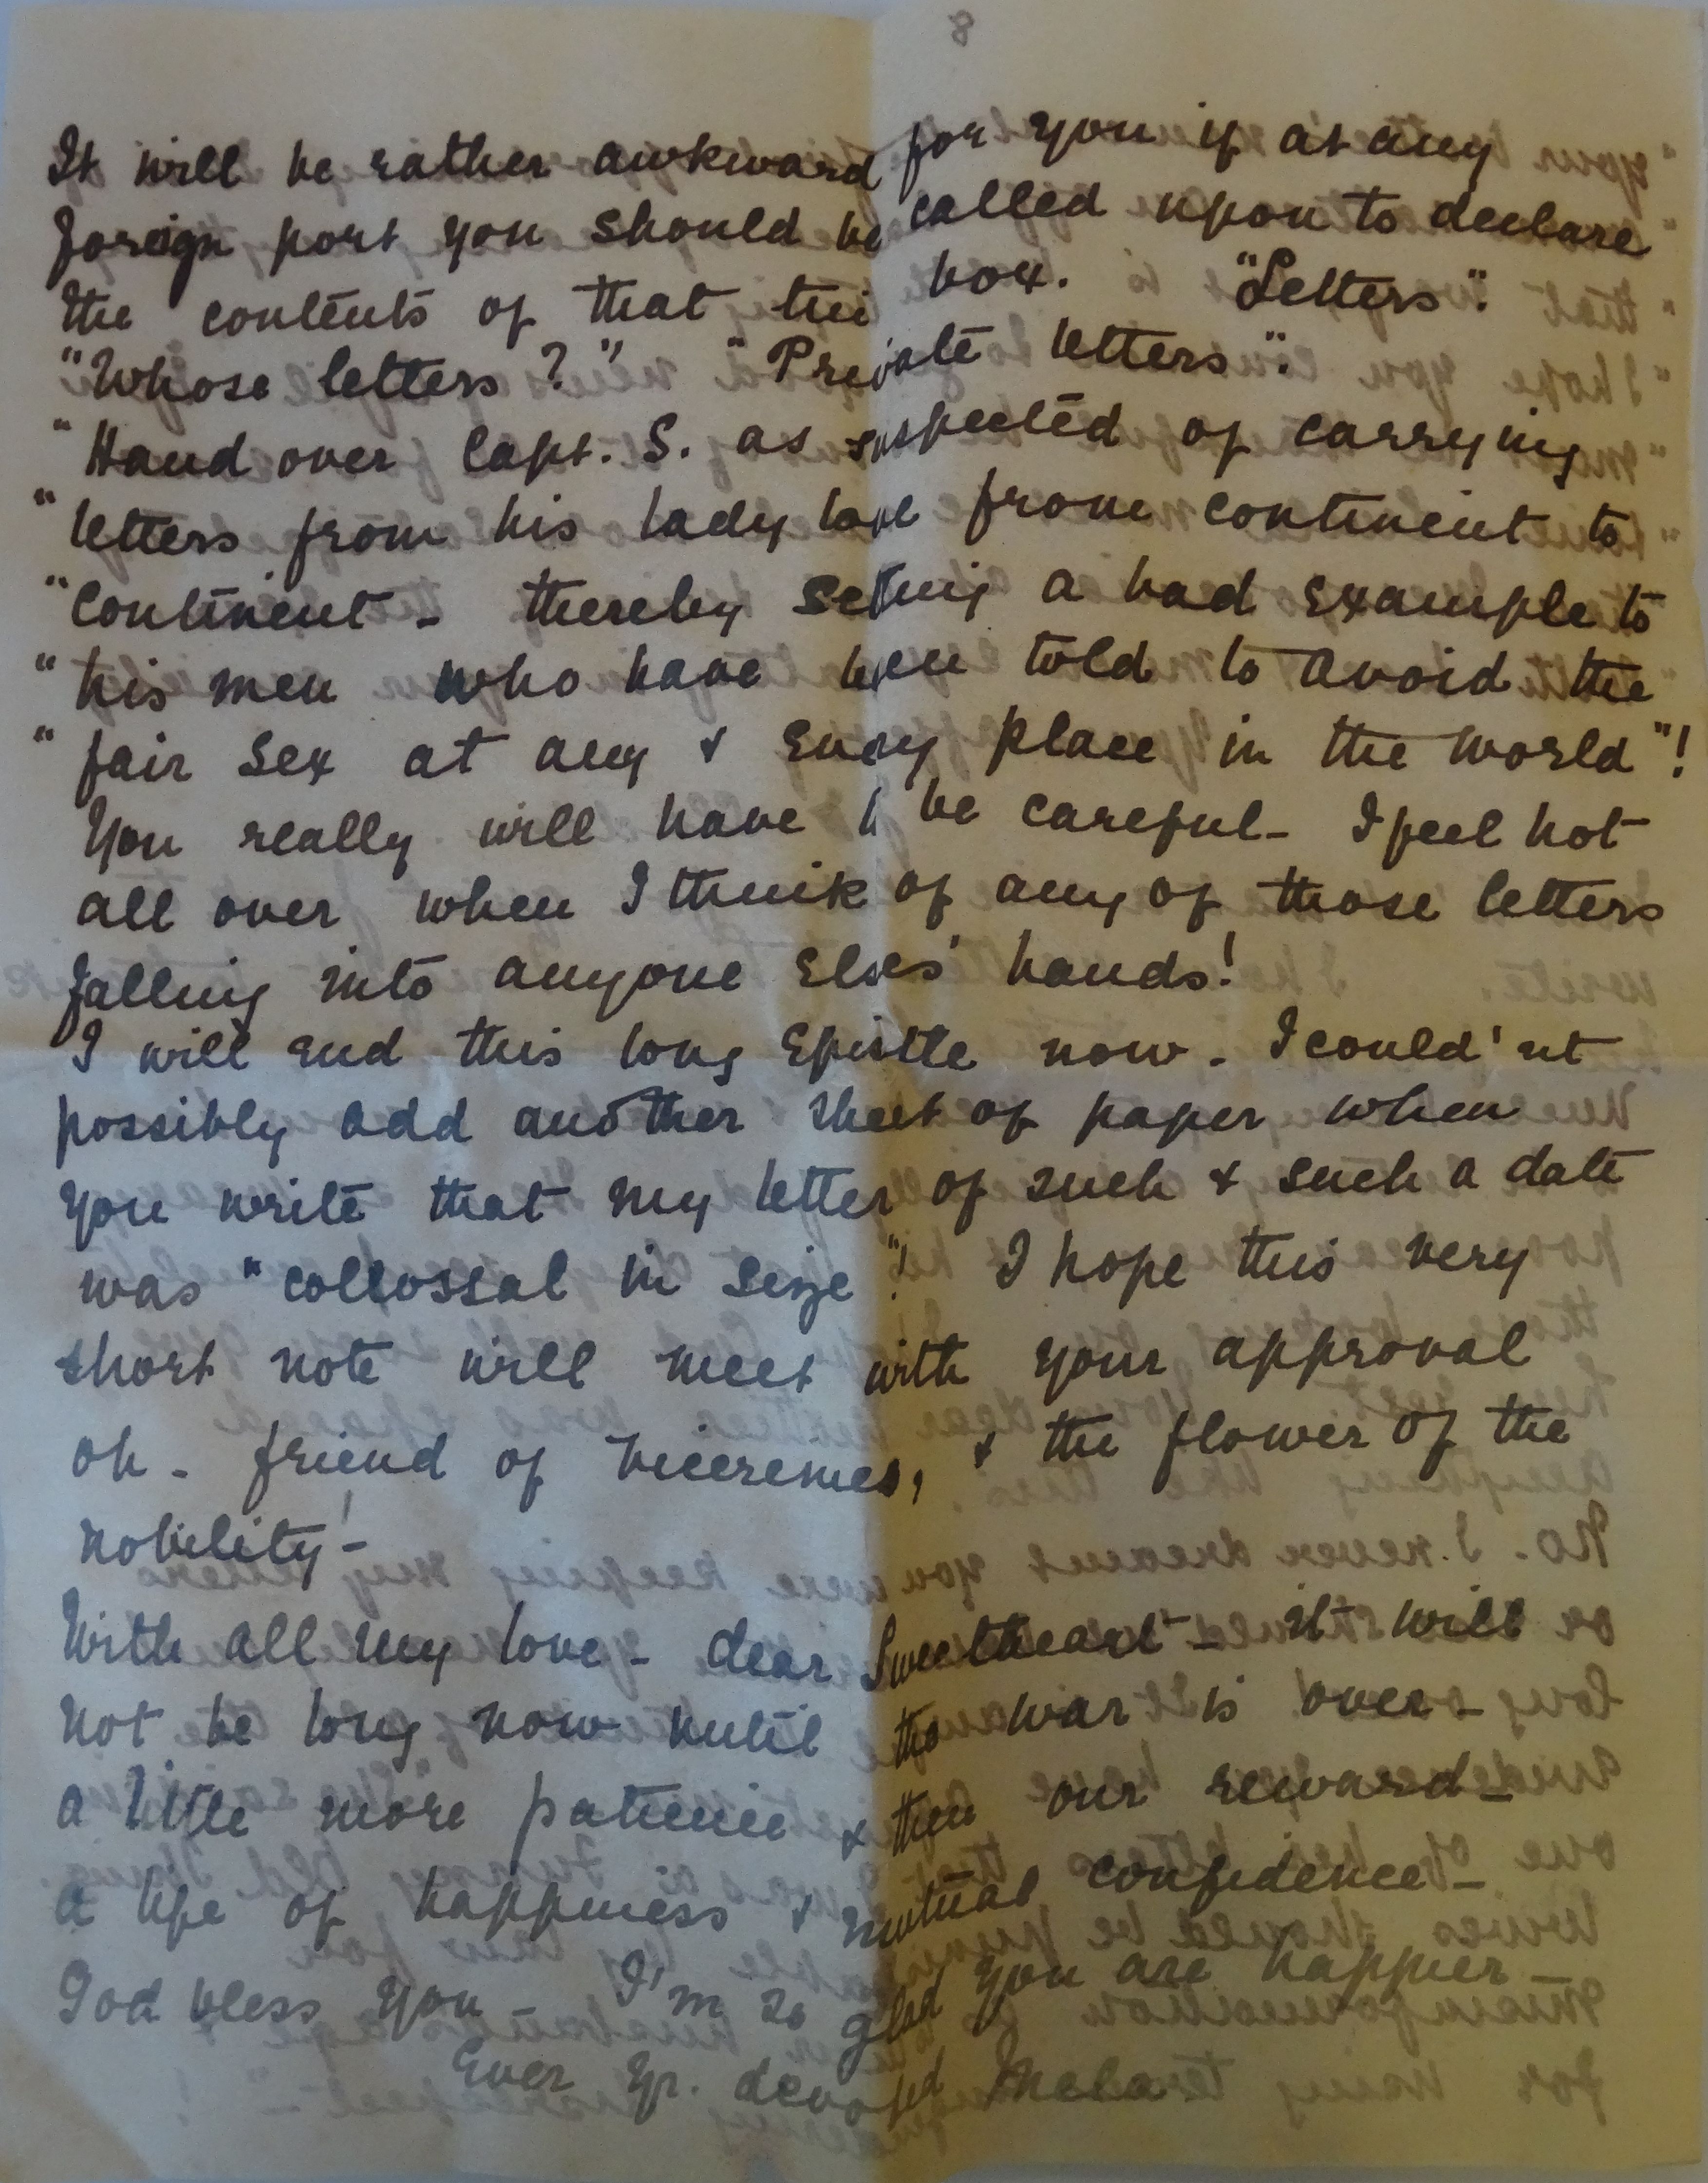 8
It will be rather awkward for you if at any
foreign port you should be called upon to declare
the contents of that tin box. "Letters".
"Whose letters?" "Private letters".
"Hand over Capt. S. as suspected of carrying
"letters from his lady love from continent to
"continent - thereby setting a bad example to
"his men who have been told to avoid the
"fair sex at any & every place in the world"!
You really will have to be careful - I feel hot
all over when I think of any of those letters
falling into anyone elses' hands!
I will end this long epistle now. I could'nt
possibly add another sheet of paper when
you write that my letter of such & such a date
was "collossal in size"! I hope this very
short note will meet with your approval
oh - friend of Vicereines, & the flower of the
nobility! -
With all my love - dear Sweetheart - it will
not be long now until the war is over -
a little more patience & then our reward -
a life of happiness & mutual confidence -
God bless you - I'm so glad you are happier -
Ever Yr. devoted